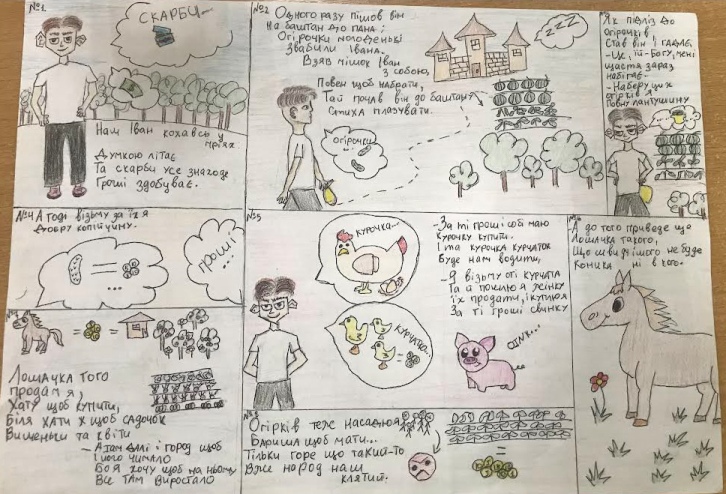 №1
СКАРБИ
Нам Іван кохавсь у
мріях
Думкою літає
Та скарби усе знаходе
Гроші здобуває.
№2 Одного разу пішов він
На баштан до пана;
Огірочки молоденькі
Звабили Івана.
Взяв мішок Іван
з собою,
Повен щоб набрати,
Тай почав він до баштану
Стиха плазувати.
zzz
огірочки
Як підліз до
огірочків
Став він і гадає.
- Це, їй-Богу, мені
щастя зараз
набігає.
- Наберу цих
огірків я
Повну лантушину
№4 А тоді візьму за їх я
Добру копійчину.
ГРОШІ
№5
КУРОЧКА...
КУРЧАТОЧ...
- За ті гроші собі маю
Курочку купити.
І та курочка курчаток
Буде нам водити,
- Я візьму оті курчата
Та й пошлю я жінку
їх продати, і куплю я
За ті гроші свинку
OINK...
№6
А до того приведе ще
Лошачка такого,
Що швидчішого не буде
Коника ні в кого.
№7
Лошачка того
продам я,
Хату щоб купити,
Біля хати ж щоб садочок
Вишеньки та квіти
- А там далі і город щоб
І його чимало
Бо я хочу щоб на ньому
Все там виростало
№8
Огірків теж насаджу я
Бариші щоб мати...
Тільки горе що такий-то
Вже народ наш
клятий.